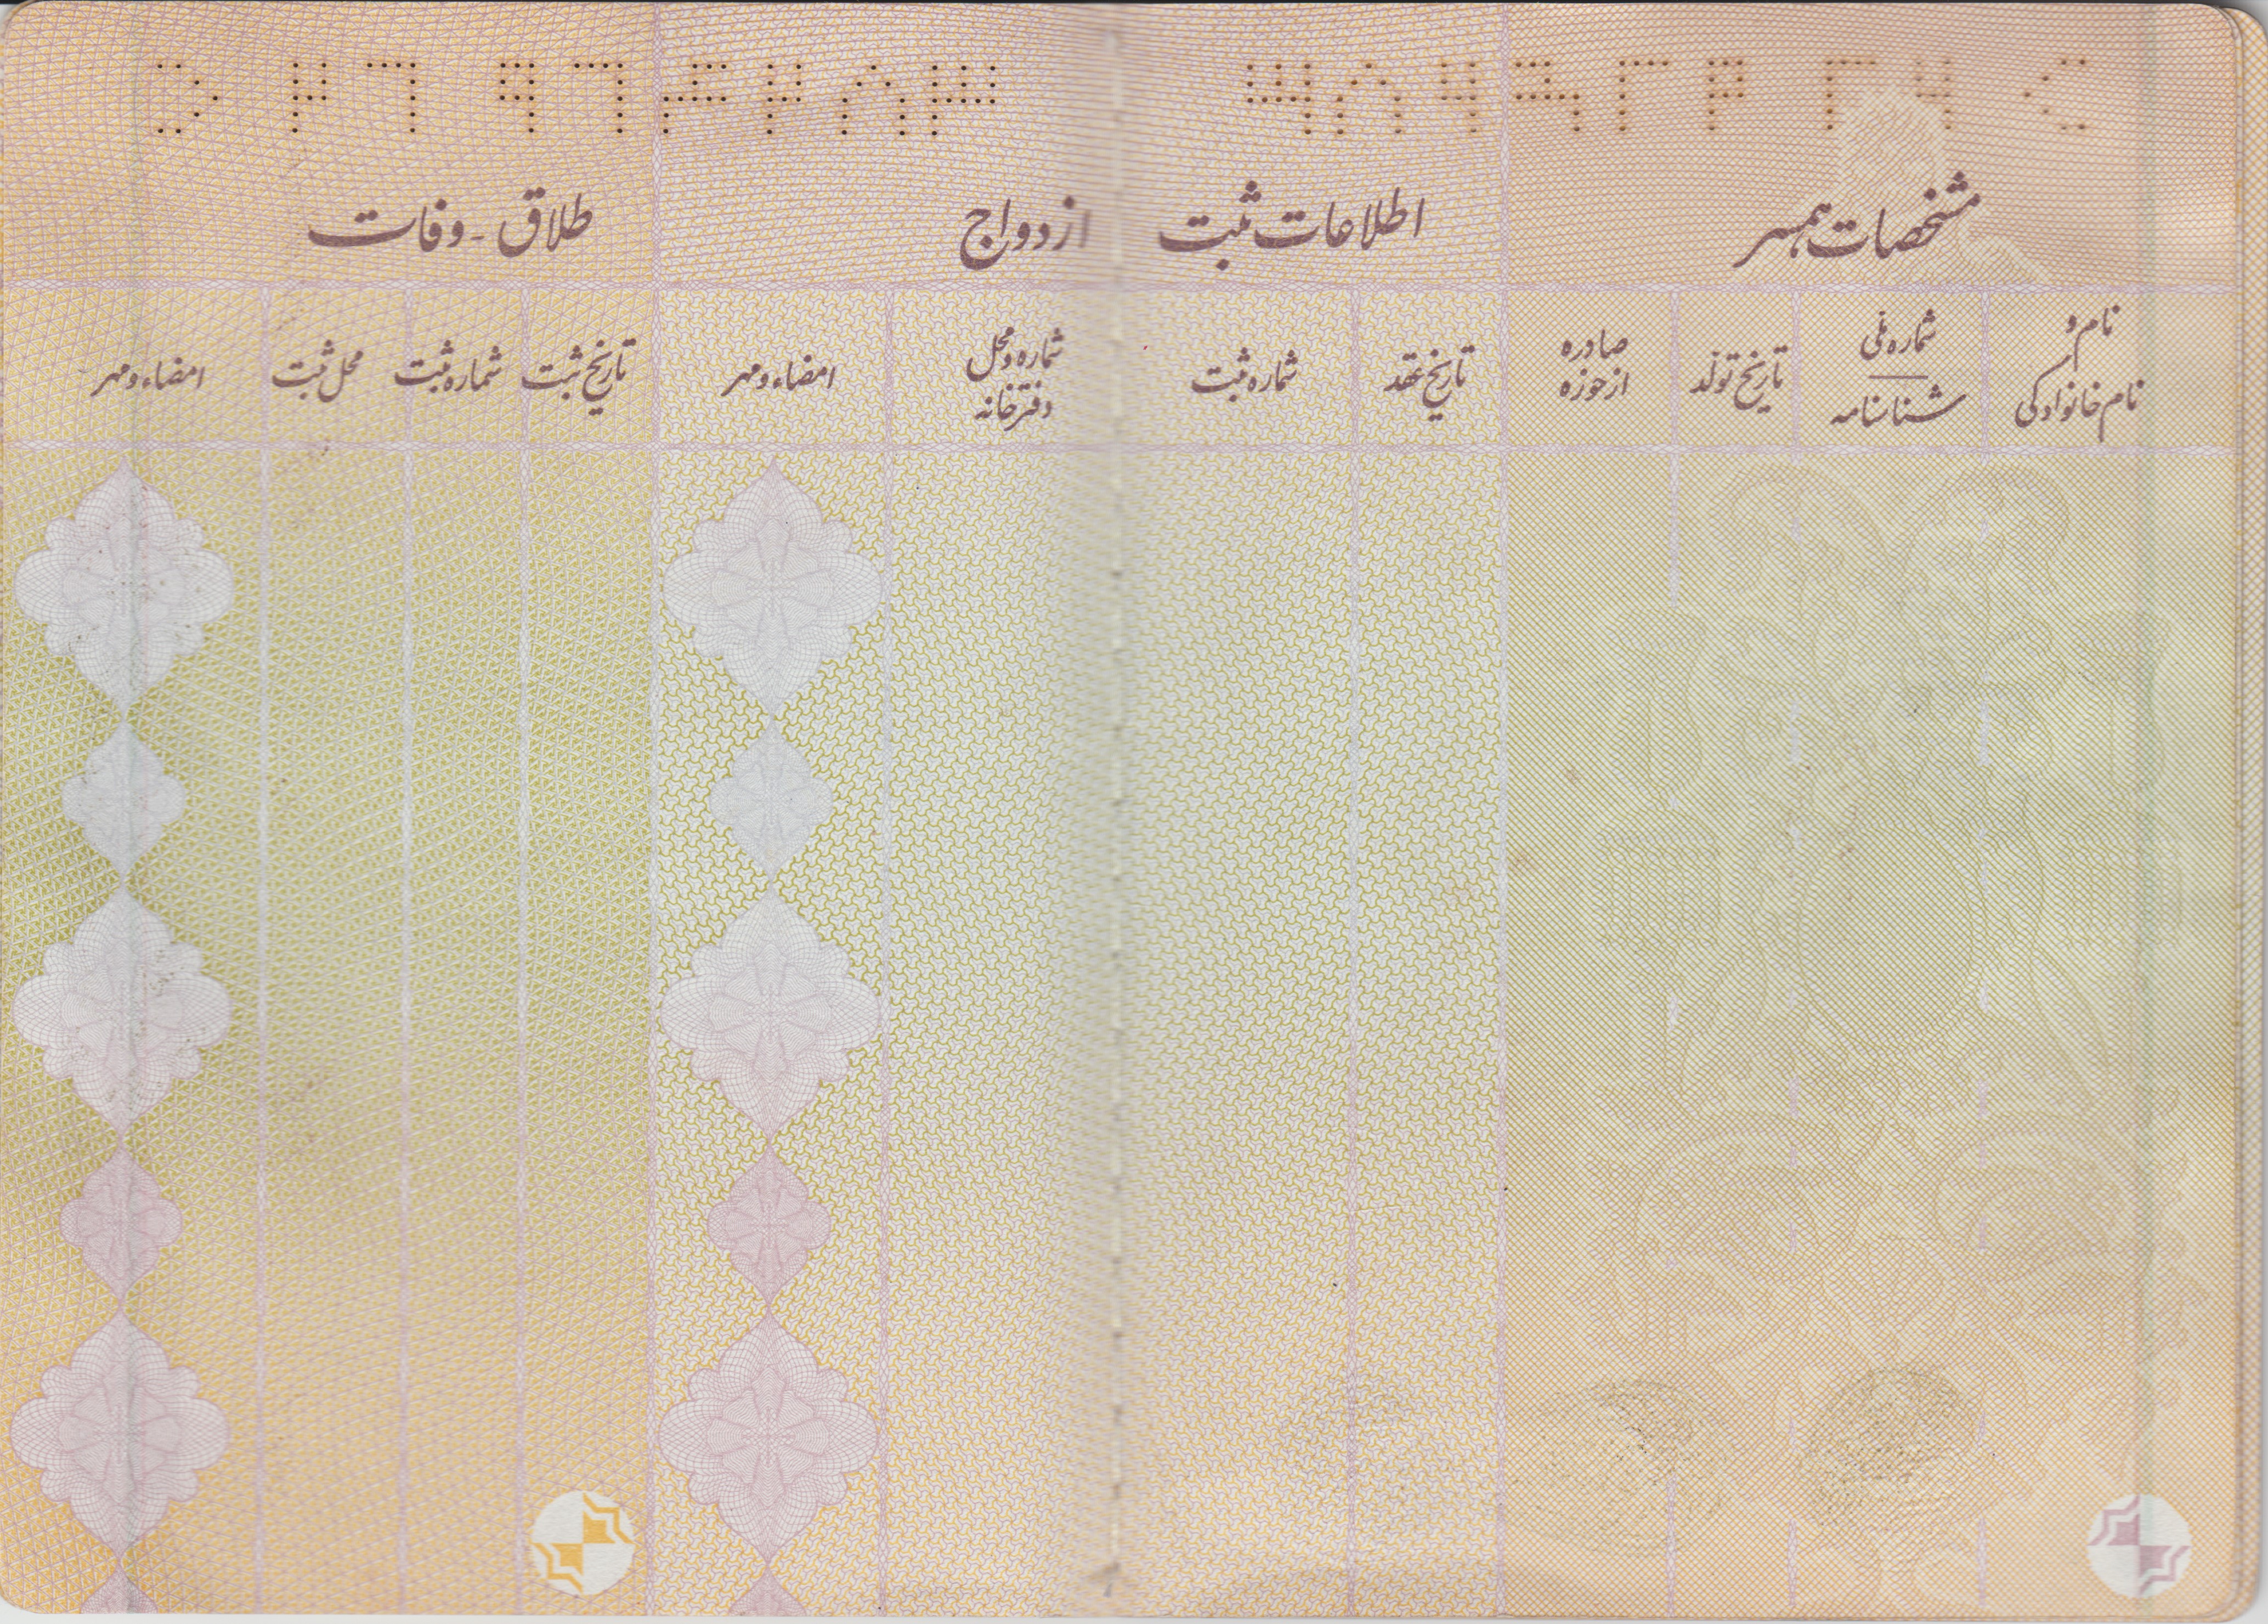 مشخصات همسر
اطلاعات ثبت ازدواج
طلاق - وفات
نام و نام خانوادگی
شماره ملی
شناسنامه
تاریخ تولد
صادره از حوزه
تاریخ عقد
شماره ثبت
شماره و محل دفترخانه
امضاء و مهر
تاریخ ثبت
شماره ثبت
محل ثبت
امضاء و مهر